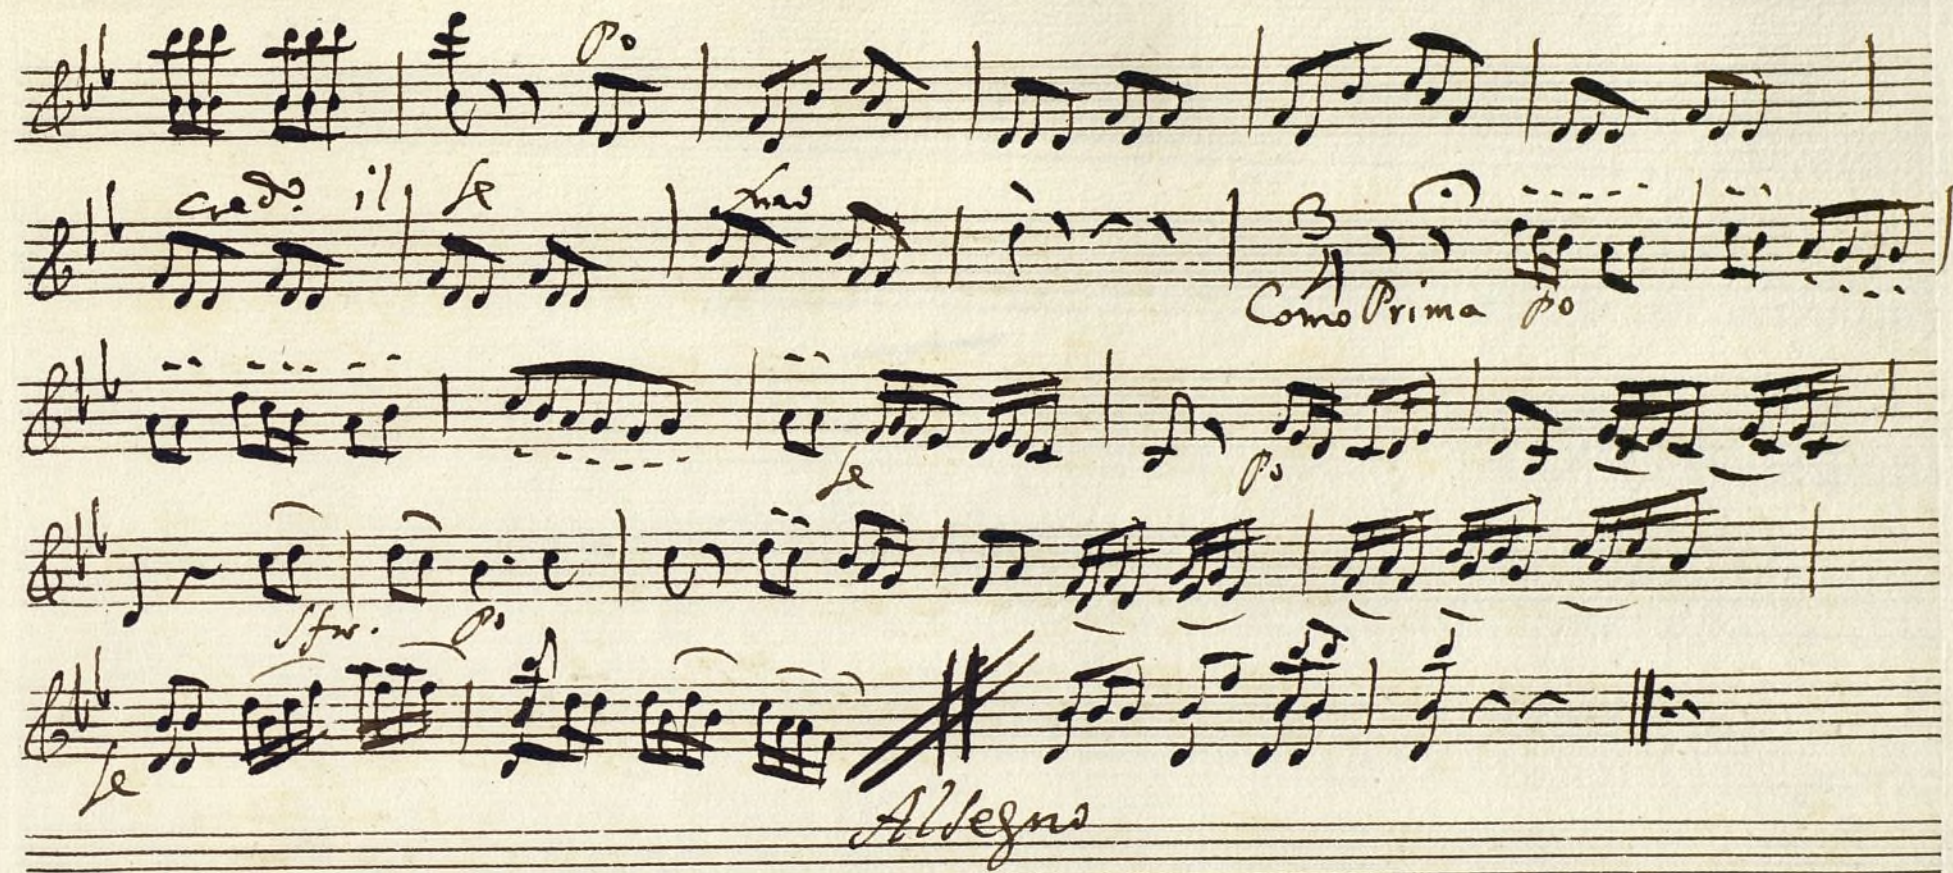 Po
Credo. il fe
3
4
Como Prima po
fe Po
Sfw. Po
fe
Al Segno